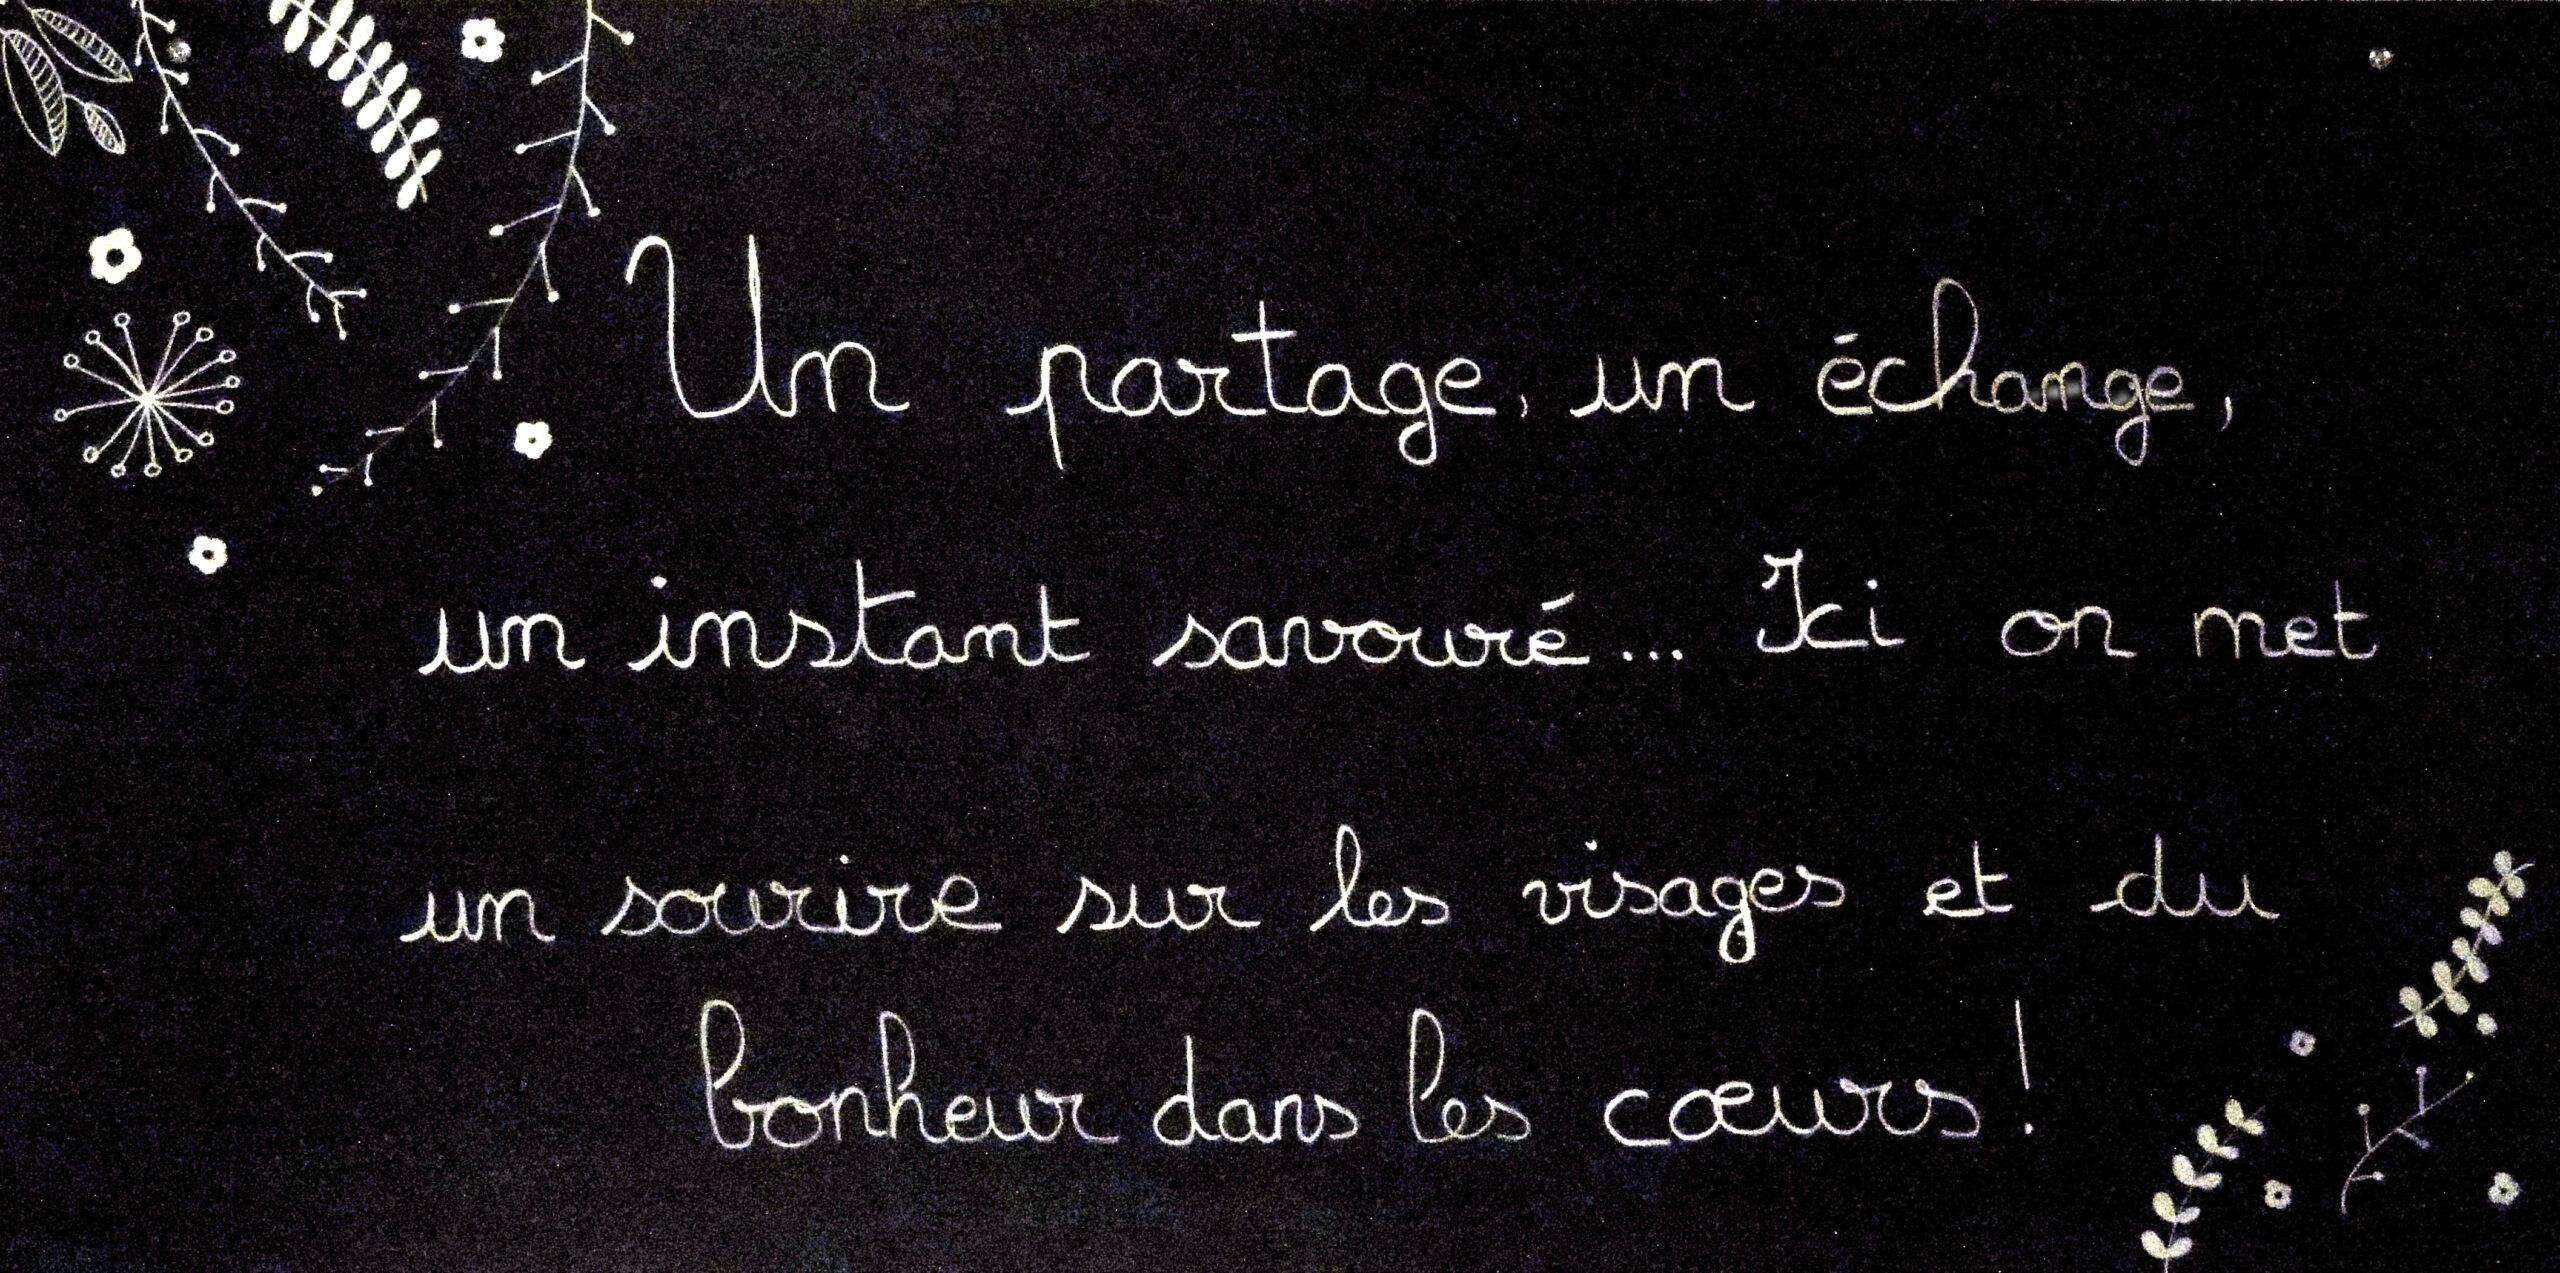 Un partage, un échange,
un instant savouré... Ici on met
un sourire sur les visages et du
bonheur dans les cœurs !